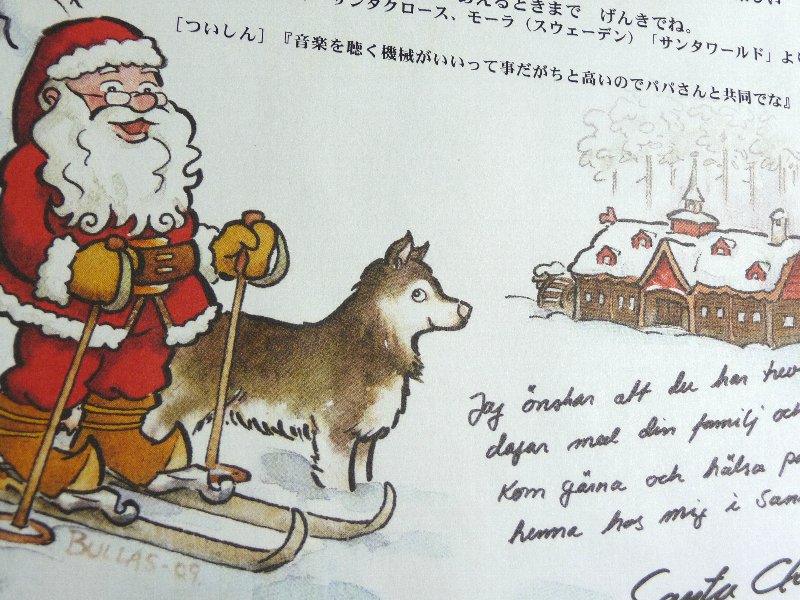 あえるときまで　げんきでね。
サンタクロース、モーラ（スウェーデン）「サンタワールド」よ
［ついしん］『音楽を聴く機械がいいって事だがちと高いのでパパさんと共同でな』
Jag önskar att du har
dagar med din familj och
Kom gärna och hälsa på
henna hos mig i
Santa
BULLAS-09.